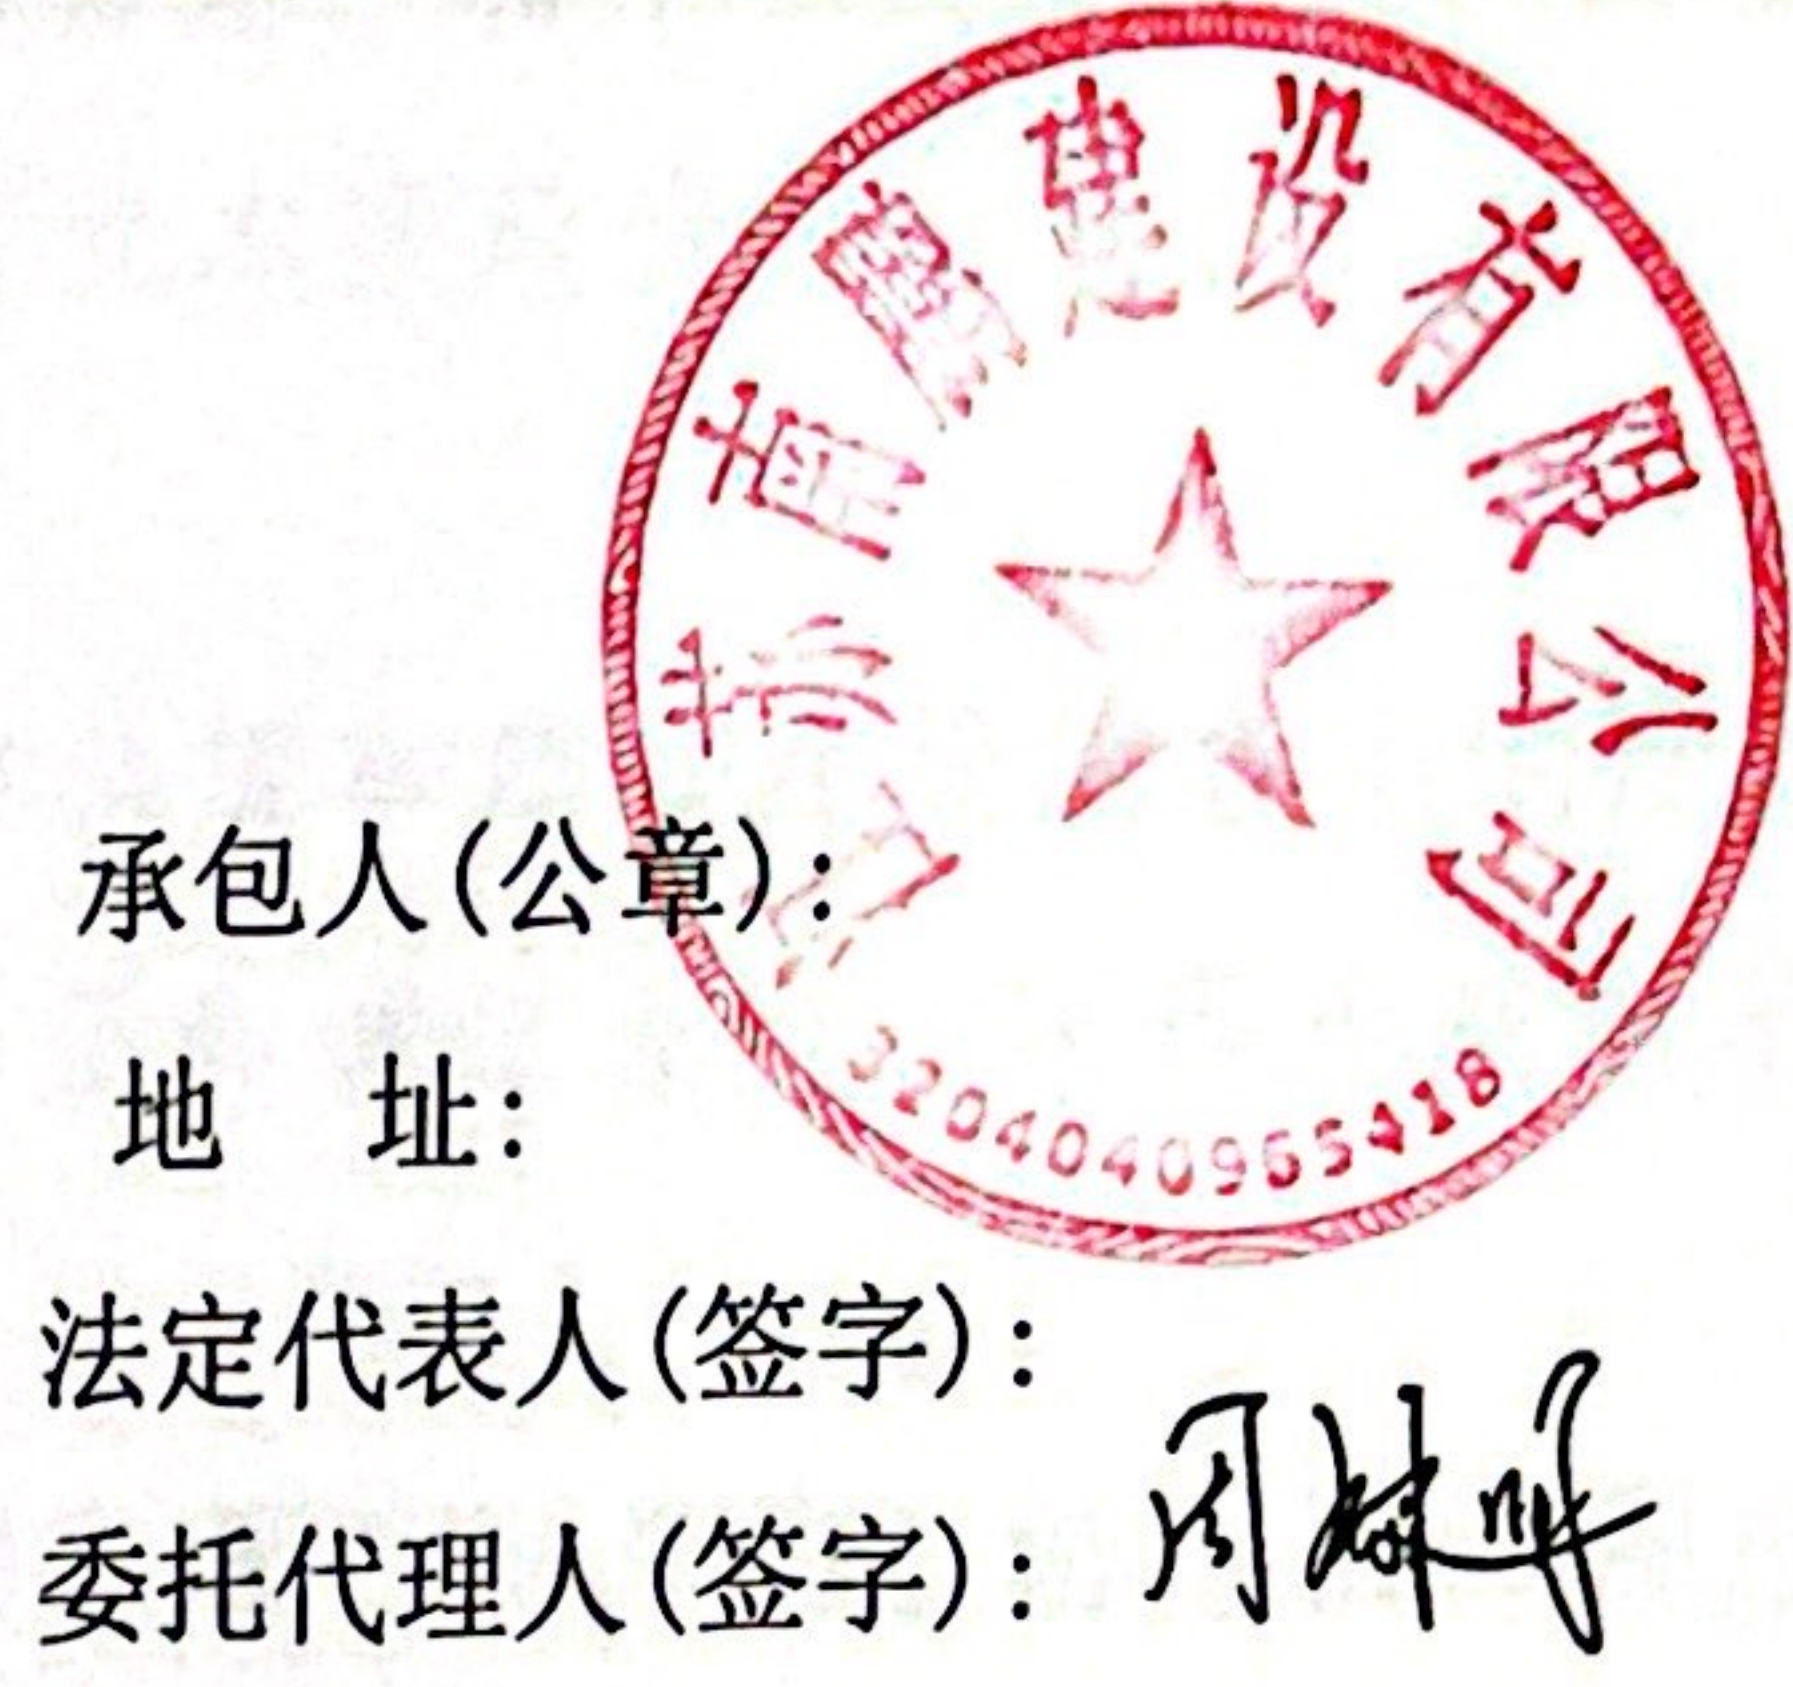 江苏南建设有限公司
3204040965418
承包人(公章):
地 址:
法定代表人(签字):
委托代理人(签字): 周